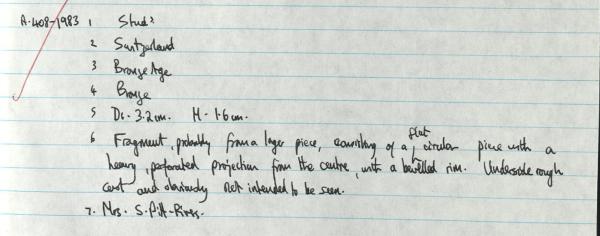 A.408-1983 1 Stud?
2 Switzerland
3 Bronze Age
4 Bronze
5 Di. 3.2cm. H. 1.6cm.
flat
6 Fragment, probably from a larger piece, consisting of a circular piece with a
heavy, perforated projection from the centre, with a bevelled rim. Underside rough
cast and obviously not intended to be seen.
7. Mrs. S. Pitt-Rivers.